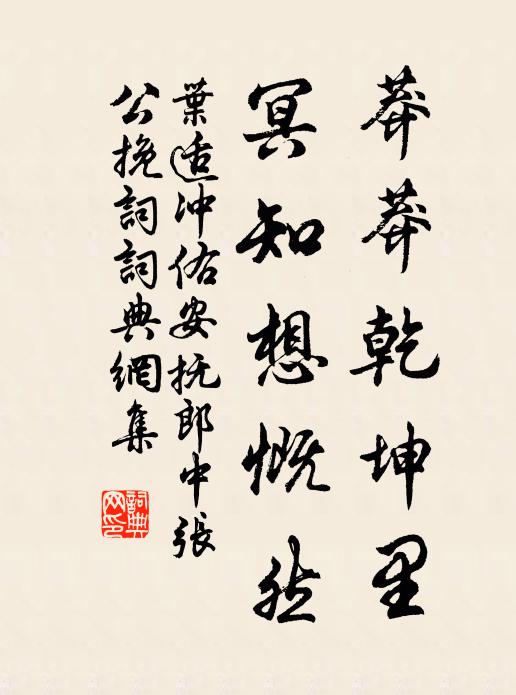 莽莽乾坤里
冥知想慨然
葉适沖佑安抚郎中張
公挽詞詞典網集
詞典
网印